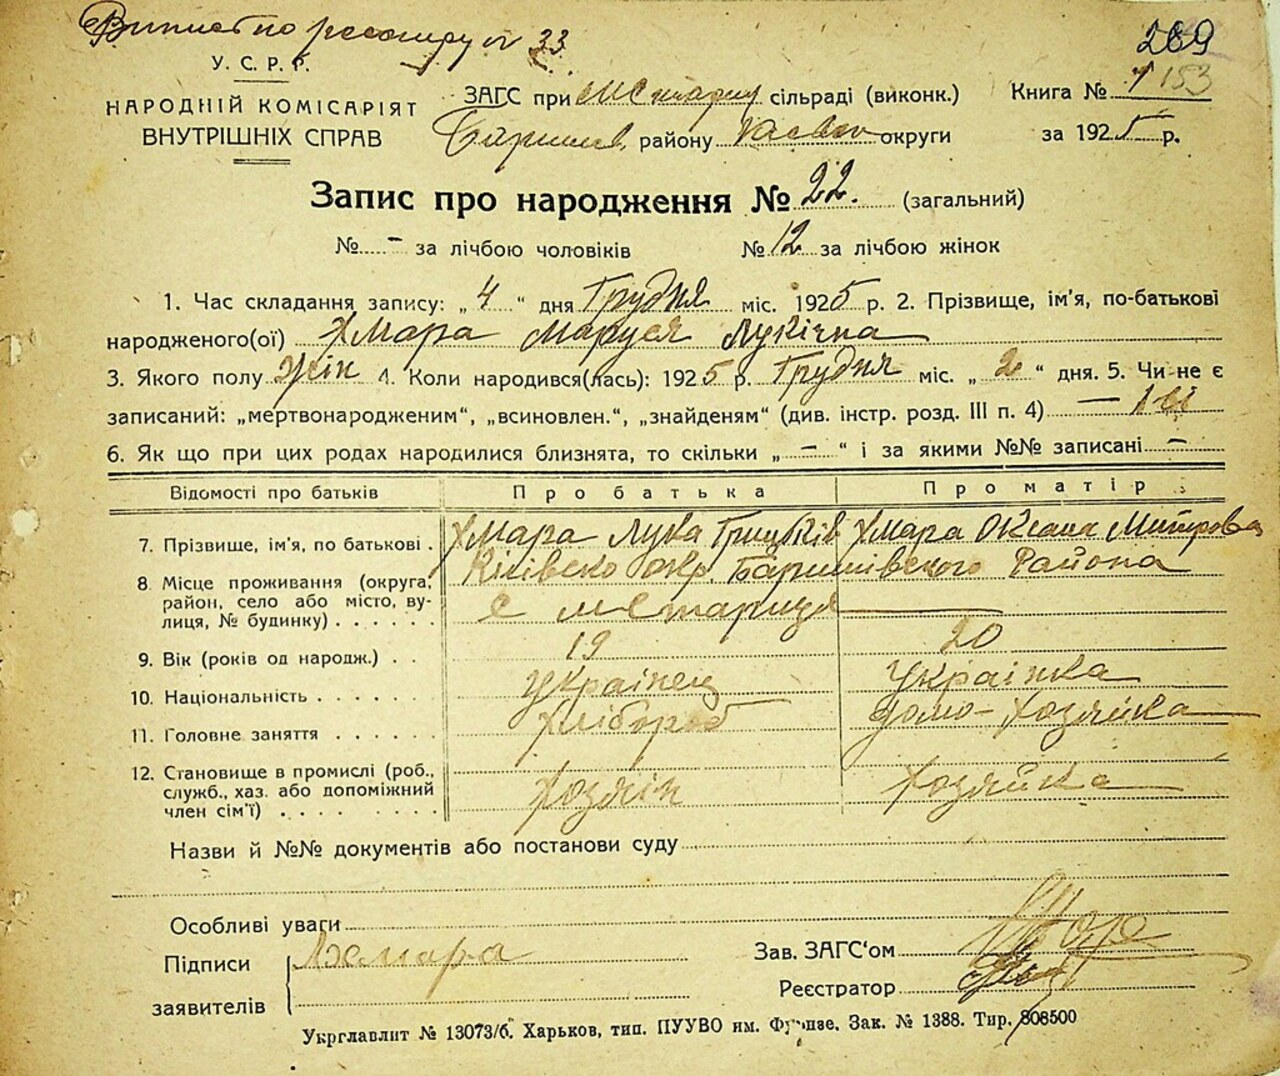 Випис по реестру № 33
289
У. С. Р. Р.
НАРОДНІЙ КОМІСАРІЯТ
ВНУТРІШНІХ СПРАВ
ЗАГС при сільраді (виконк.)
Книга № 1 153
Баришев. району округи
за 1925 р.
Запис про народження № 22. (загальний)
№ - за лічбою чоловіків № 12 за лічбою жінок
1. Час складання запису: „ 4 “ дня Грудня міс. 1925 р. 2. Прізвище, ім'я, по-батькові
народженого(ої) Хмара Маруся Лукічна
3. Якого полу жін 4. Коли народився(лась): 1925 р. Грудня міс. „ 2 “ дня. 5. Чи не є
записаний: „мертвонародженим“, „всиновлен.“, „знайденям“ (див. інстр. розд. III п. 4) —
6. Як що при цих родах народилися близнята, то скільки „ - “ і за якими №№ записані -
Відомості про батьків Про батька Про матір
7. Прізвище, ім'я, по батькові . Хмара Лука Грицьків Хмара Оксана Митрова
8 Місце проживання (округа, район, село або місто, вулиця, № будинку) . . . . . . Київско окр. Баришівского Района
с
9. Вік (років од народж.) . . 19 20
10. Національність . . . . . Українец Українка
11. Головне заняття . . . . . Хлібороб домо-хозяйка
12. Становище в промислі (роб., служб., хаз. або допоміжний член сім'ї) . . . . . Хозяїн Хозяйка
Назви й №№ документів або постанови суду
Особливі уваги
Підписи Хмара
заявителів
Зав. ЗАГС'ом
Реєстратор
Укрглавліт № 13073/б. Харьков, тип. ПУУВО им. Фрунзе. Зак. № 1388. Тир. 808500